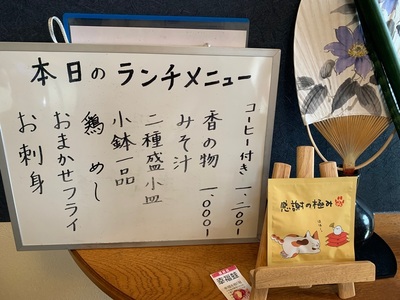 本日のランチメニュー
コーヒー付き 一、二〇〇一
香の物 一、〇〇〇一
みそ汁
二種盛小皿
小鉢一品
鶏めし
おまかせフライ
お刺身
感謝の極み
幸福銭